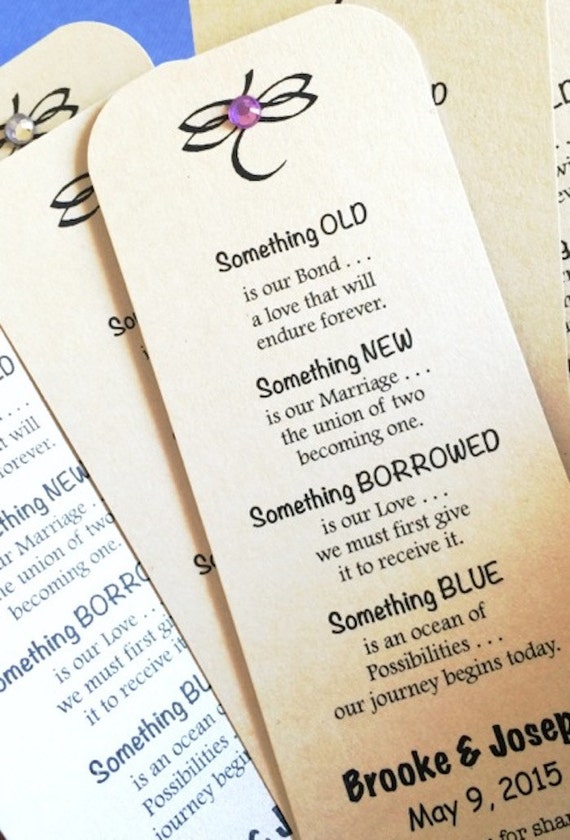 Something OLD
is our Bond . . .
a love that will
endure forever.
Something NEW
is our Marriage . . .
the union of two
becoming one.
Something BORROWED
is our Love . . .
we must first give
it to receive it.
Something BLUE
is an ocean of
Possibilities . . .
our journey begins today.
Brooke & Josep
May 9, 2015
for shar
OLD
that will
forever.
Something NEW
our Marriage . . .
the union of two
becoming one.
Something BORRO
is our Love . . .
we must first give
it to receive it.
Something BLU
is an ocean
Possibilities . . .
journey begin